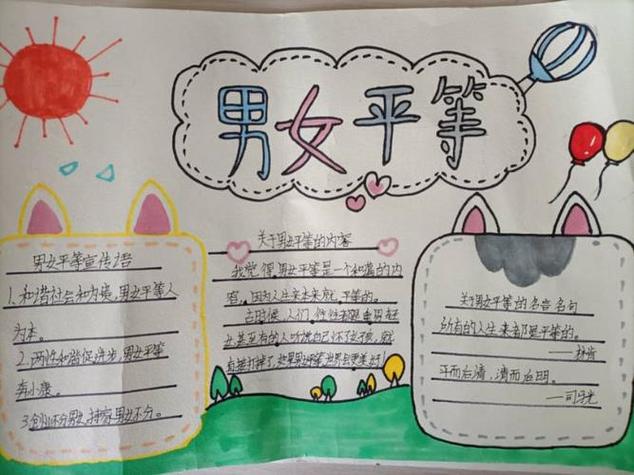 男女平等
男女平等宣传语
1.和谐社会和为贵,男女平等人
为本。
2.两性和谐促进步,男女平等
奔小康。
3.创业不分男女,持家男女不分。
关于男女平等的内容
我觉得男女平等是一个和谐的内
容,因为人生来本来就平等的。
古时候,人们
女,甚至有的人听说自己怀了女孩,就
直接打掉了,如果男女平等,世界会更美好!
关于男女平等的名言名句
所有的人生来都是平等的。
——林肯
平而后清,清而后明。
——司马光